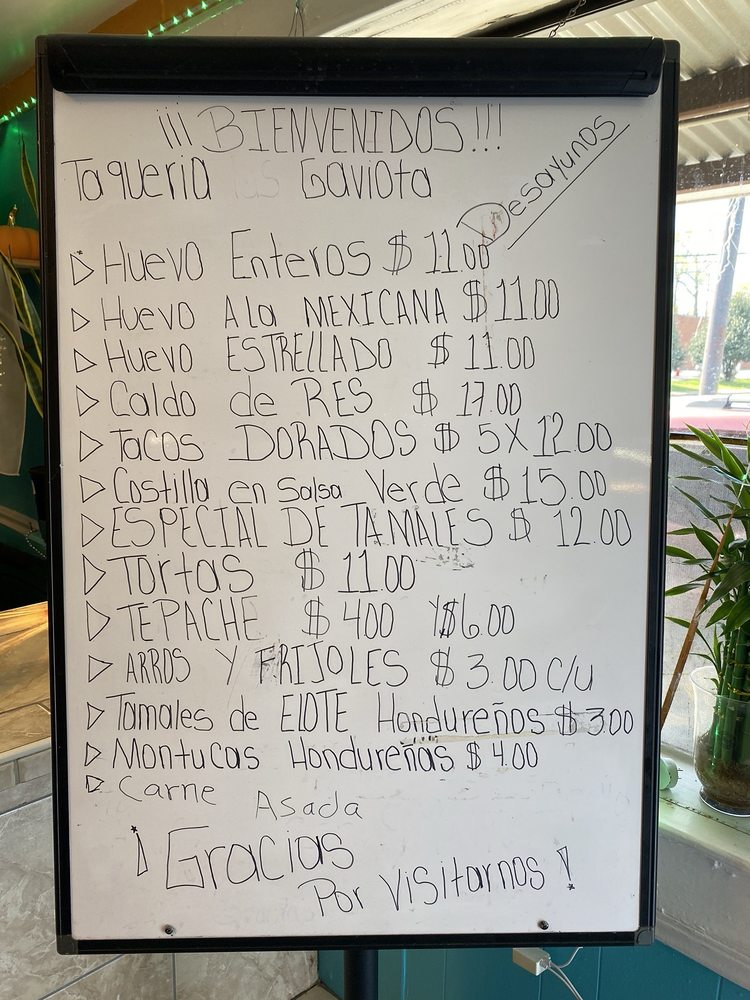 ¡¡¡BIENVENIDOS!!!
Taqueria las Gaviota
Desayunos
Huevo Enteros $ 11.00
Huevo A la MEXICANA $ 11.00
Huevo ESTRELLADO $ 11.00
Caldo de RES $ 17.00
Tacos DORADOS $ 5 X 12.00
Costilla en Salsa Verde $ 15.00
ESPECIAL DE TAMALES $ 12.00
Tortas $ 11.00
TEPACHE $ 400 Y $6.00
ARROS Y FRIJOLES $ 3.00 C/U
Tamales de ElOTE Hondureños $ 3.00
Montucas Hondureñas $ 4.00
Carne Asada
¡Gracias
Por Visitarnos!